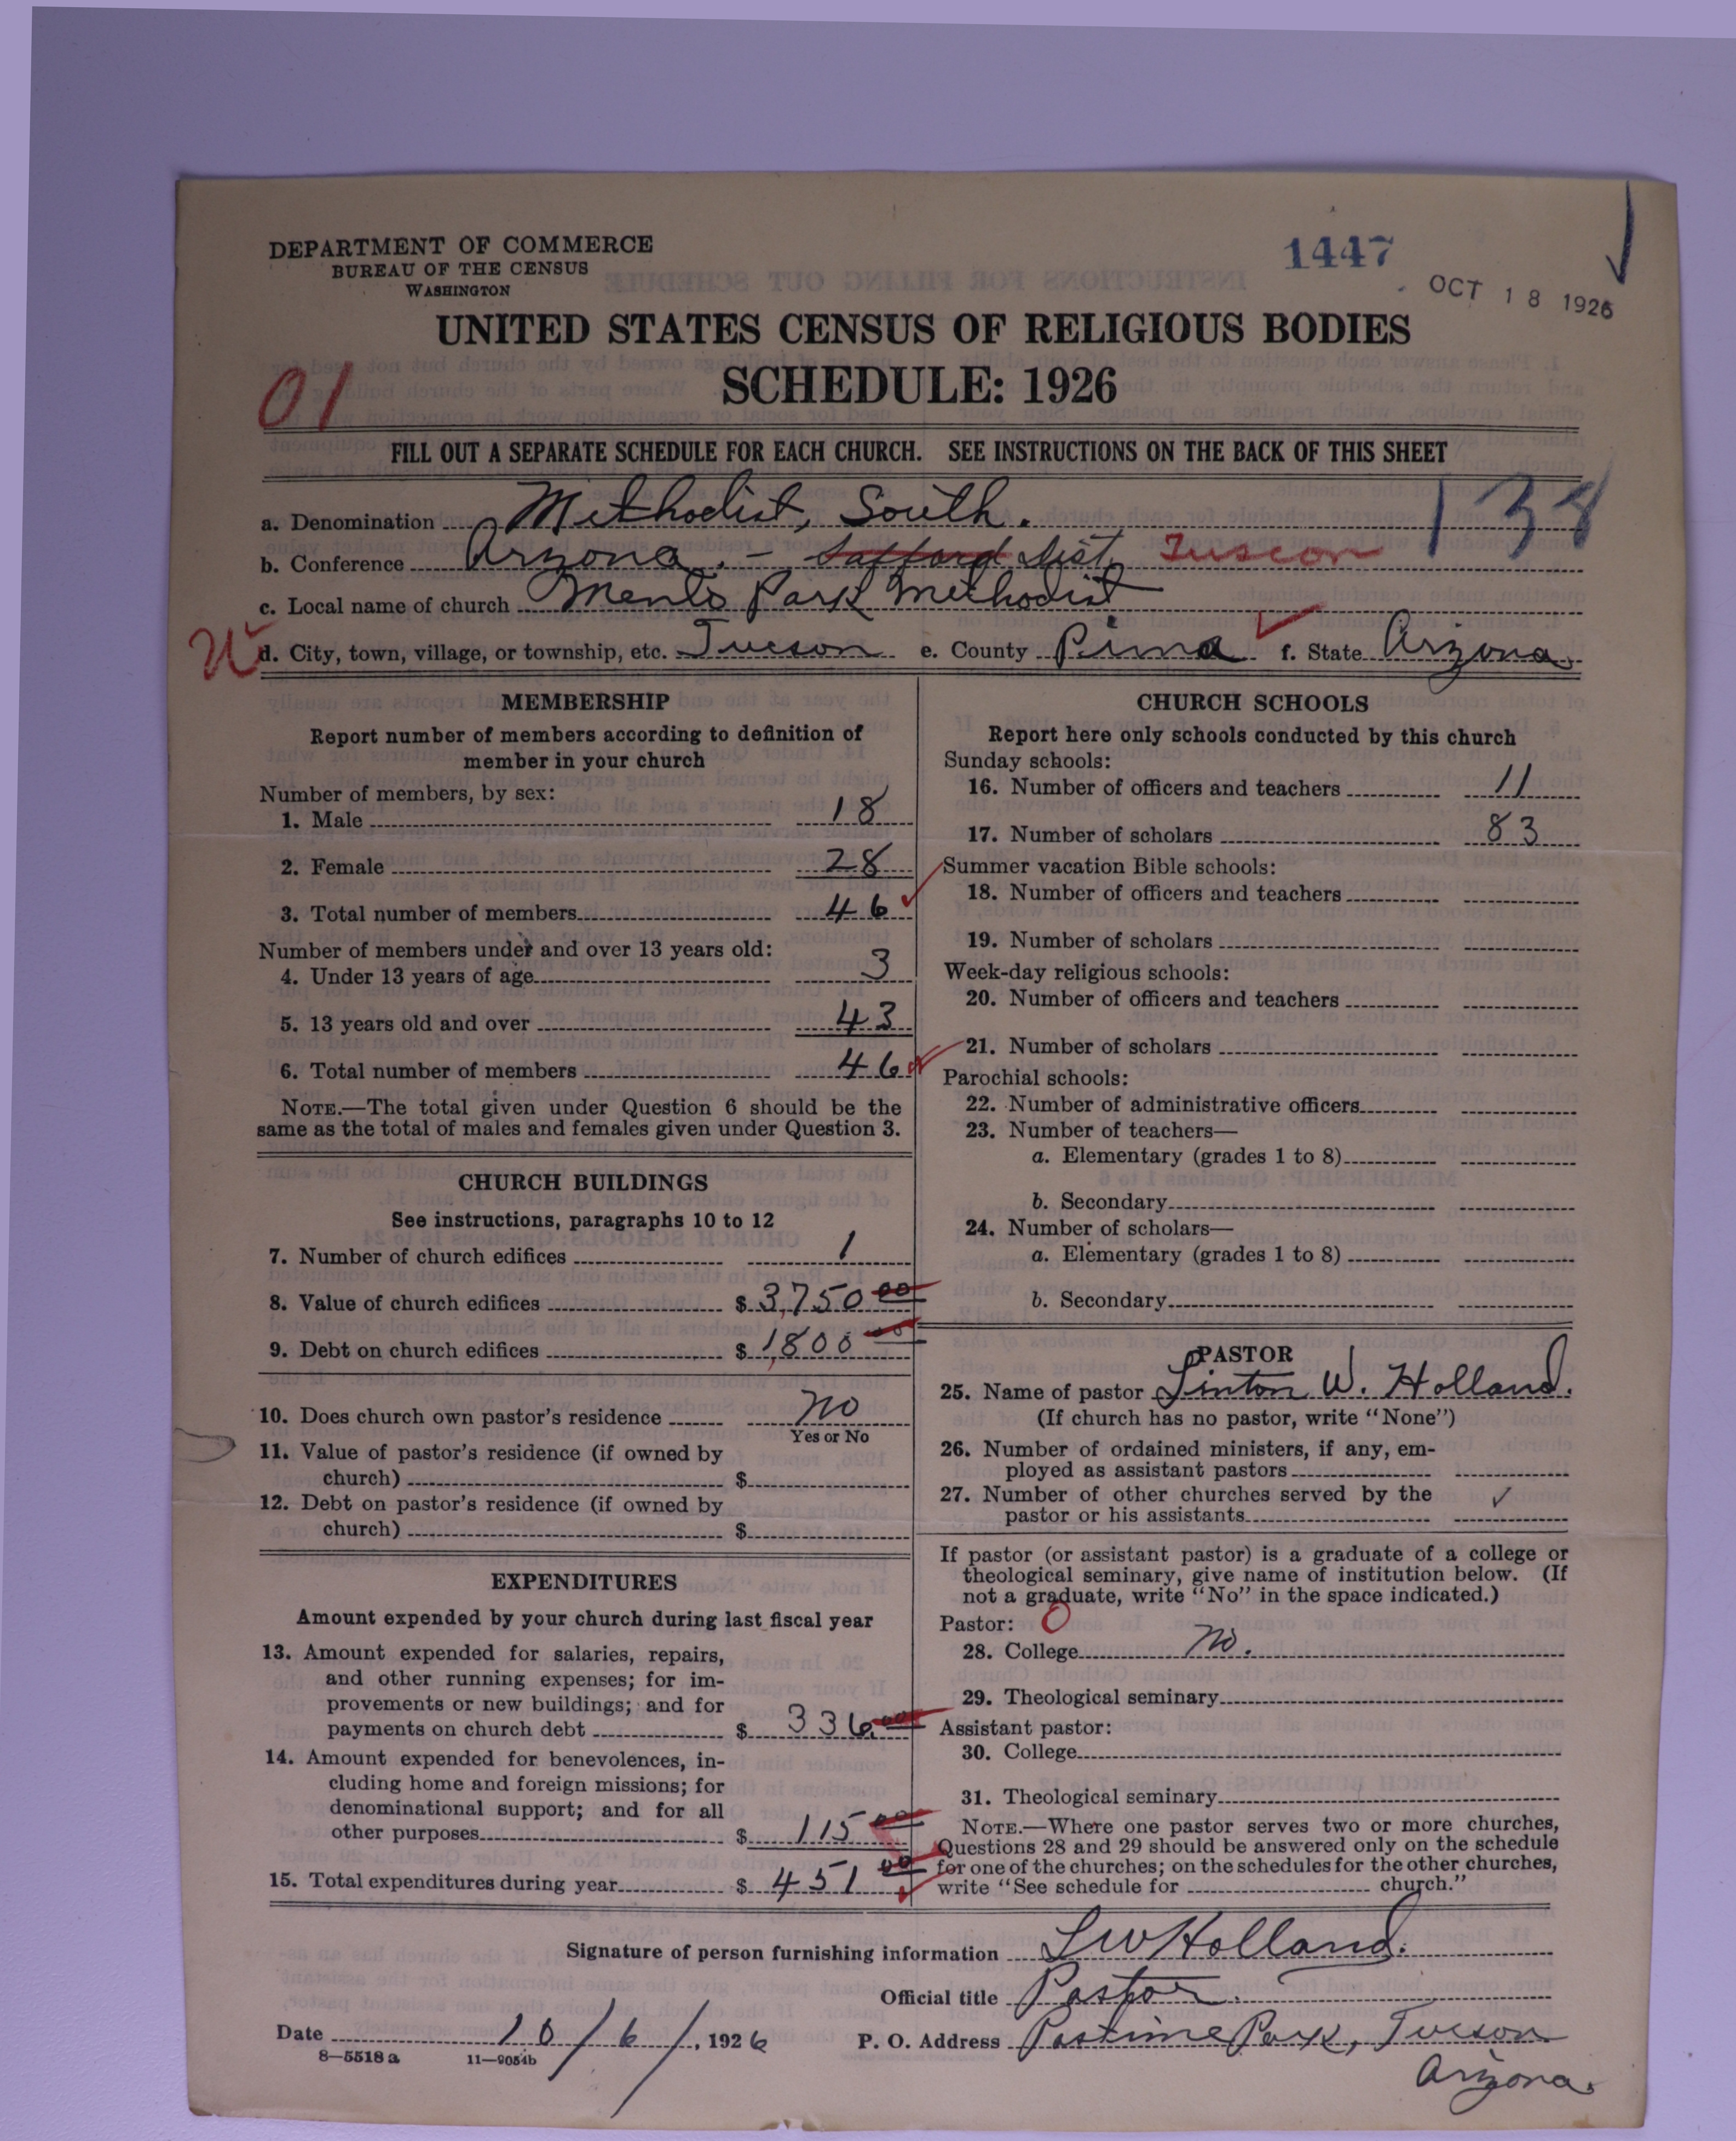 DEPARTMENT OF COMMERCE
BUREAU OF THE CENSUS
WASHINGTON
1447
OCT 18 1926
UNITED STATES CENSUS OF RELIGIOUS BODIES
SCHEDULE: 1926
01
FILL OUT A SEPARATE SCHEDULE FOR EACH CHURCH. SEE INSTRUCTIONS ON THE BACK OF THIS SHEET
138
a. Denomination Methodist, South.
b. Conference Arzona. - Safford Dist. Tuscon
c. Local name of church Menlo Park Methodist
d. City, town, village, or township, etc. Tucson e. County Pima f. State Arizona.
MEMBERSHIP
Report number of members according to definition of
member in your church
Number of members, by sex:
1. Male 18
2. Female 28
3. Total number of members 46
Number of members under and over 13 years old:
4. Under 13 years of age 3
5. 13 years old and over 43
6. Total number of members 46
NOTE.—The total given under Question 6 should be the
same as the total of males and females given under Question 3.
CHURCH BUILDINGS
See instructions, paragraphs 10 to 12
7. Number of church edifices 1
8. Value of church edifices $ 3,750 00
9. Debt on church edifices $ 1,800 00
10. Does church own pastor's residence No
Yes or No
11. Value of pastor's residence (if owned by
church) $
12. Debt on pastor's residence (if owned by
church) $
EXPENDITURES
Amount expended by your church during last fiscal year
13. Amount expended for salaries, repairs,
and other running expenses; for im-
provements or new buildings; and for
payments on church debt $ 336.00
14. Amount expended for benevolences, in-
cluding home and foreign missions; for
denominational support; and for all
other purposes $ 115 00
15. Total expenditures during year $ 451 00
CHURCH SCHOOLS
Report here only schools conducted by this church
Sunday schools:
16. Number of officers and teachers 11
17. Number of scholars 83
Summer vacation Bible schools:
18. Number of officers and teachers
19. Number of scholars
Week-day religious schools:
20. Number of officers and teachers
21. Number of scholars
Parochial schools:
22. Number of administrative officers
23. Number of teachers—
a. Elementary (grades 1 to 8)
b. Secondary
24. Number of scholars—
a. Elementary (grades 1 to 8)
b. Secondary
PASTOR
25. Name of pastor Linton W. Holland.
(If church has no pastor, write "None")
26. Number of ordained ministers, if any, em-
ployed as assistant pastors
27. Number of other churches served by the
pastor or his assistants ✓
If pastor (or assistant pastor) is a graduate of a college or
theological seminary, give name of institution below. (If
not a graduate, write "No" in the space indicated.)
Pastor: 0
28. College No.
29. Theological seminary
Assistant pastor:
30. College
31. Theological seminary
NOTE.—Where one pastor serves two or more churches,
Questions 28 and 29 should be answered only on the schedule
for one of the churches; on the schedules for the other churches,
write "See schedule for church."
Signature of person furnishing information L W Holland.
Official title Pastor.
Date 10/6/, 1926 P. O. Address Pastime Park, Tucson
Arizona.
8—5518a 11—9054b